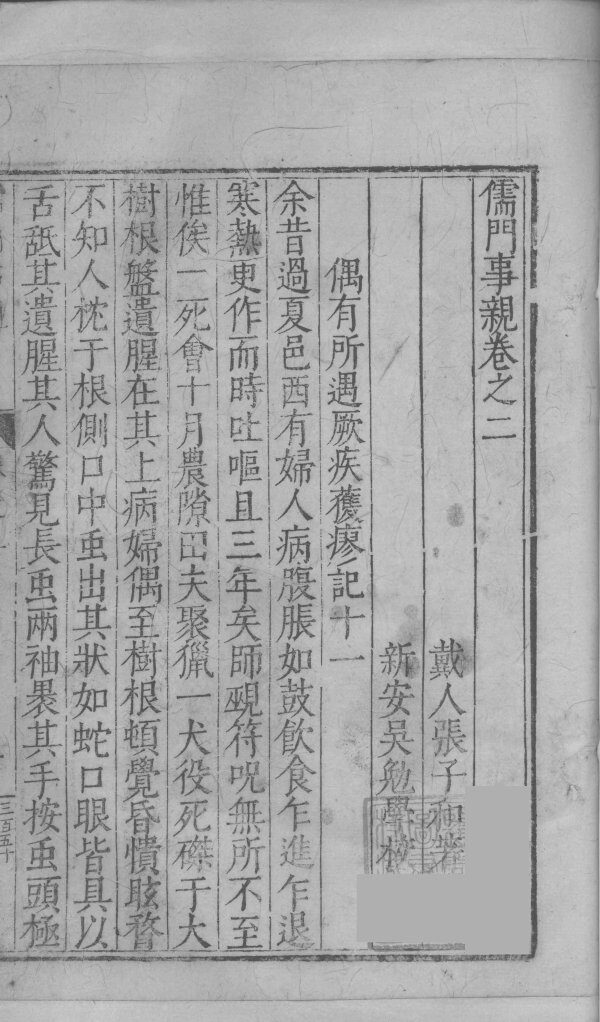 儒門事親卷之二
戴人張子和著
新安吳勉學校
偶有所遇厥疾獲瘳記十一
余昔過夏邑西有婦人病腹脹如鼓飲食乍進乍退
寒熱更作而時吐嘔且三年矣師覡符呪無所不至
惟俟一死會十月農隙田夫聚獵一犬役死磔于大
樹根盤遺腥在其上病婦偶至樹根頓覺昏憒眩瞀
不知人枕于根側口中䖝出其狀如蛇口眼皆具以
舌舐其遺腥其人驚見長䖝兩袖裹其手按䖝頭極
三百五十